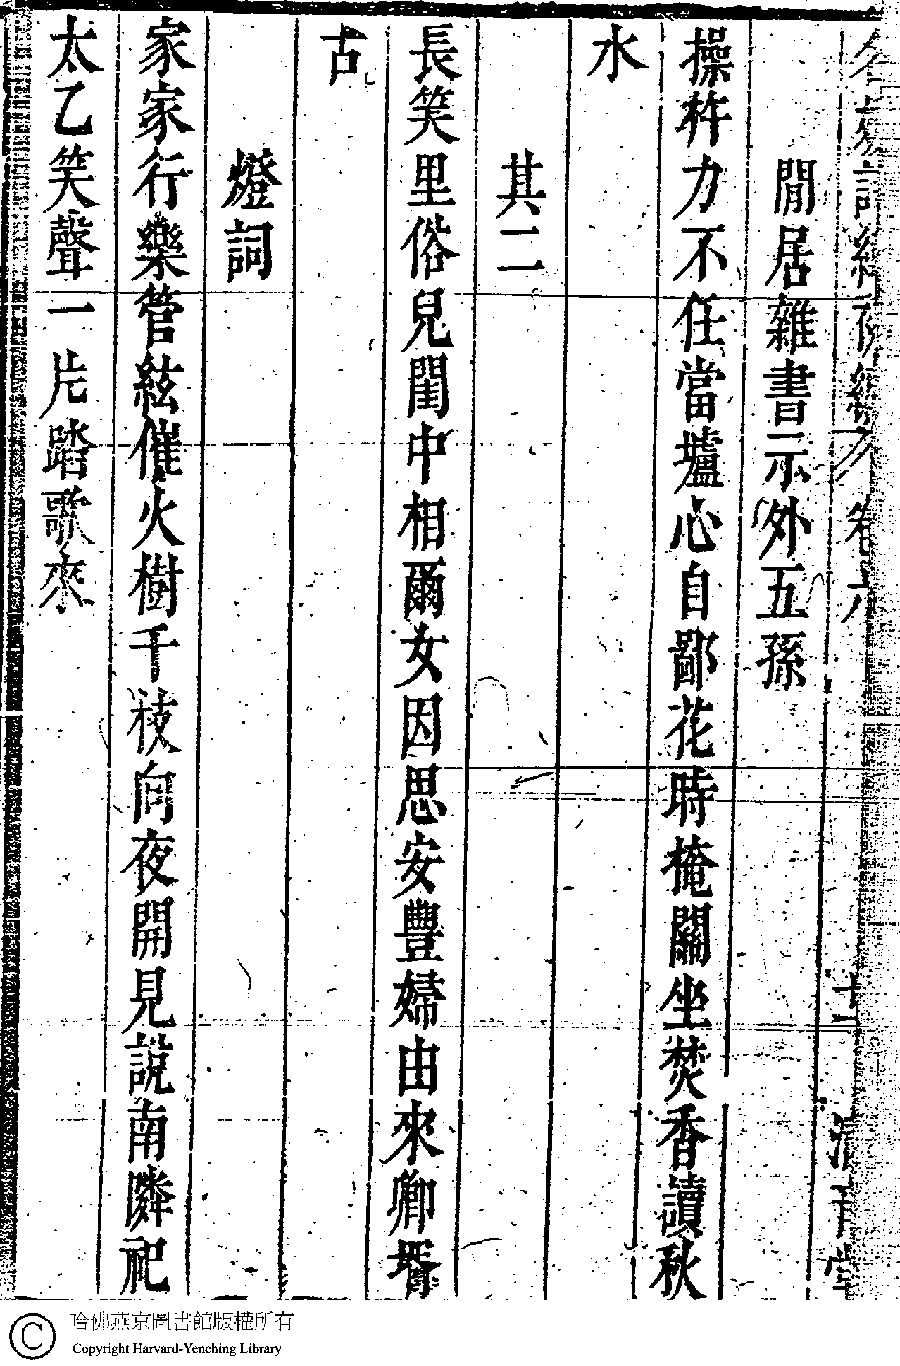 閒居雜書示外五孫
操杵力不任當壚心自鄙花時掩關坐焚香讀秋
水
其二
長笑里俗兒閨中相爾女因思安豐婦由來卿壻
古
燈詞
家家行樂管絃催火樹千枝向夜開見說南隣祀
太乙笑聲一片踏歌來
哈佛燕京圖書館版權所有
Copyright Harvard-Yenching Library